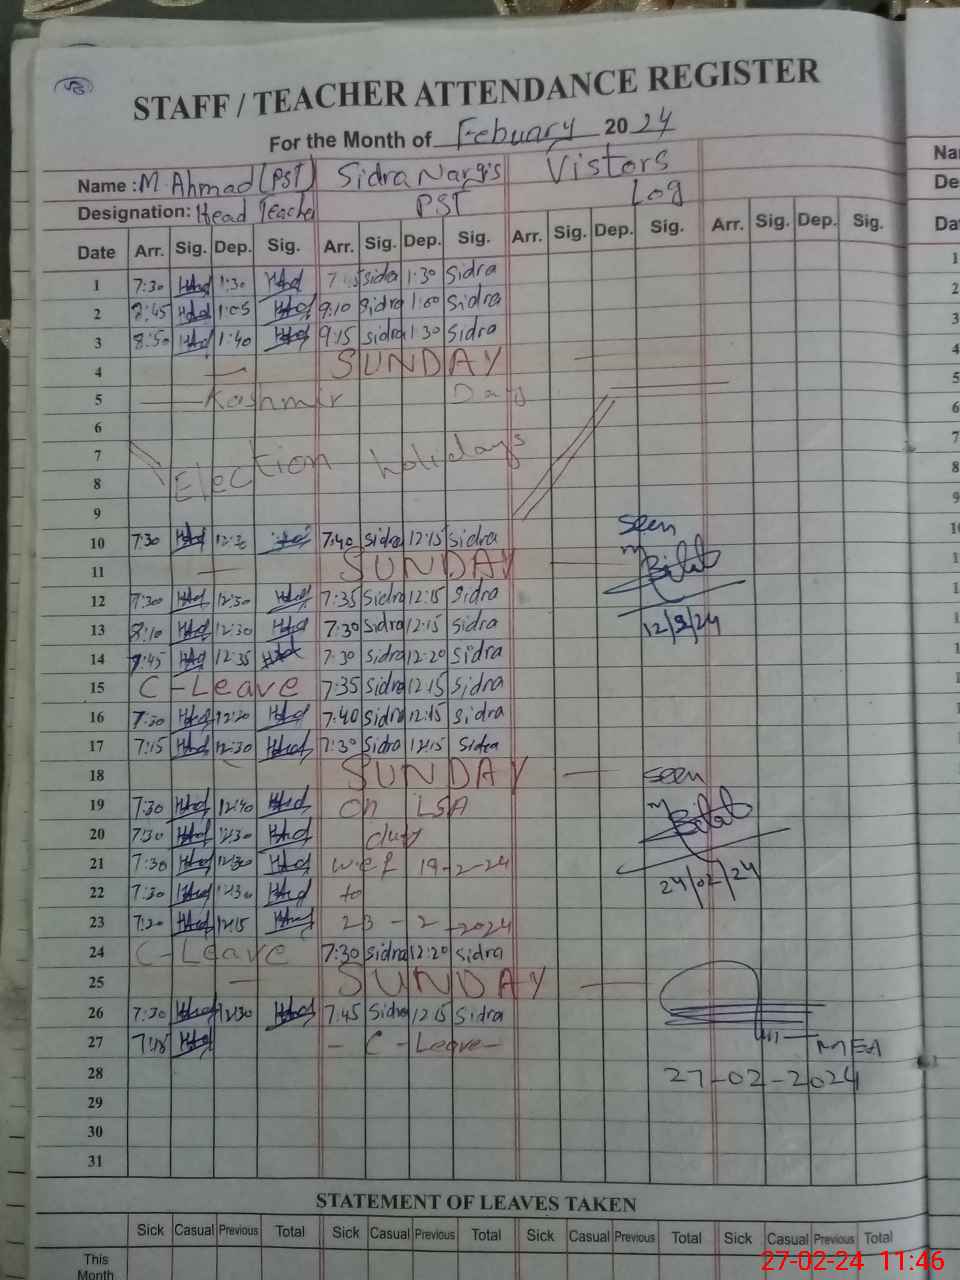 STAFF / TEACHER ATTENDANCE REGISTER
For the Month of Febuary 2024
Name : M. Ahmad (PST) Sidra Nargis Vistors
Designation: Head Teacher PST Log
Date Arr. Sig. Dep. Sig. Arr. Sig. Dep. Sig. Arr. Sig. Dep. Sig. Arr. Sig. Dep. Sig.
1 7:30 1:30 sidra 1:30 Sidra
2 1:05 9:10 Sidra 1:00 Sidra
3 8:50 1:40 9:15 sidra 1:30 Sidra
4 — SUNDAY —
5 — Kashmir Day —
6
7
8 Election holidays
9
10 7:30 7:40 Sidra 12:15 Sidra seen
11 — SUNDAY — Bilal
12 7:30 12:30 7:35 Sidra 12:15 Sidra
13 8:10 12:30 7:30 Sidra 12:15 Sidra 12/2/24
14 7:45 12:35 7:30 Sidra 12:20 Sidra
15 C-Leave 7:35 Sidra 12:15 Sidra
16 7:30 12:20 7:40 Sidra 12:15 Sidra
17 7:15 12:30 7:30 Sidra 12:15 Sidra
18 SUNDAY — seen
19 7:30 12:40 On LSA Bilal
20 7:30 12:30 duty
21 7:30 12:30 w.e.f 19-2-24
22 7:30 12:30 to 24/02/24
23 7:20 12:15 23-2-2024
24 C-Leave 7:30 Sidra 12:20 Sidra
25 — SUNDAY —
26 7:30 12:30 7:45 Sidra 12:15 Sidra
27 - C-Leave- MEA
28 27-02-2024
29
30
31
STATEMENT OF LEAVES TAKEN
Sick Casual Previous Total Sick Casual Previous Total Sick Casual Previous Total Sick Casual Previous Total
This
Month
27-02-24 11:46